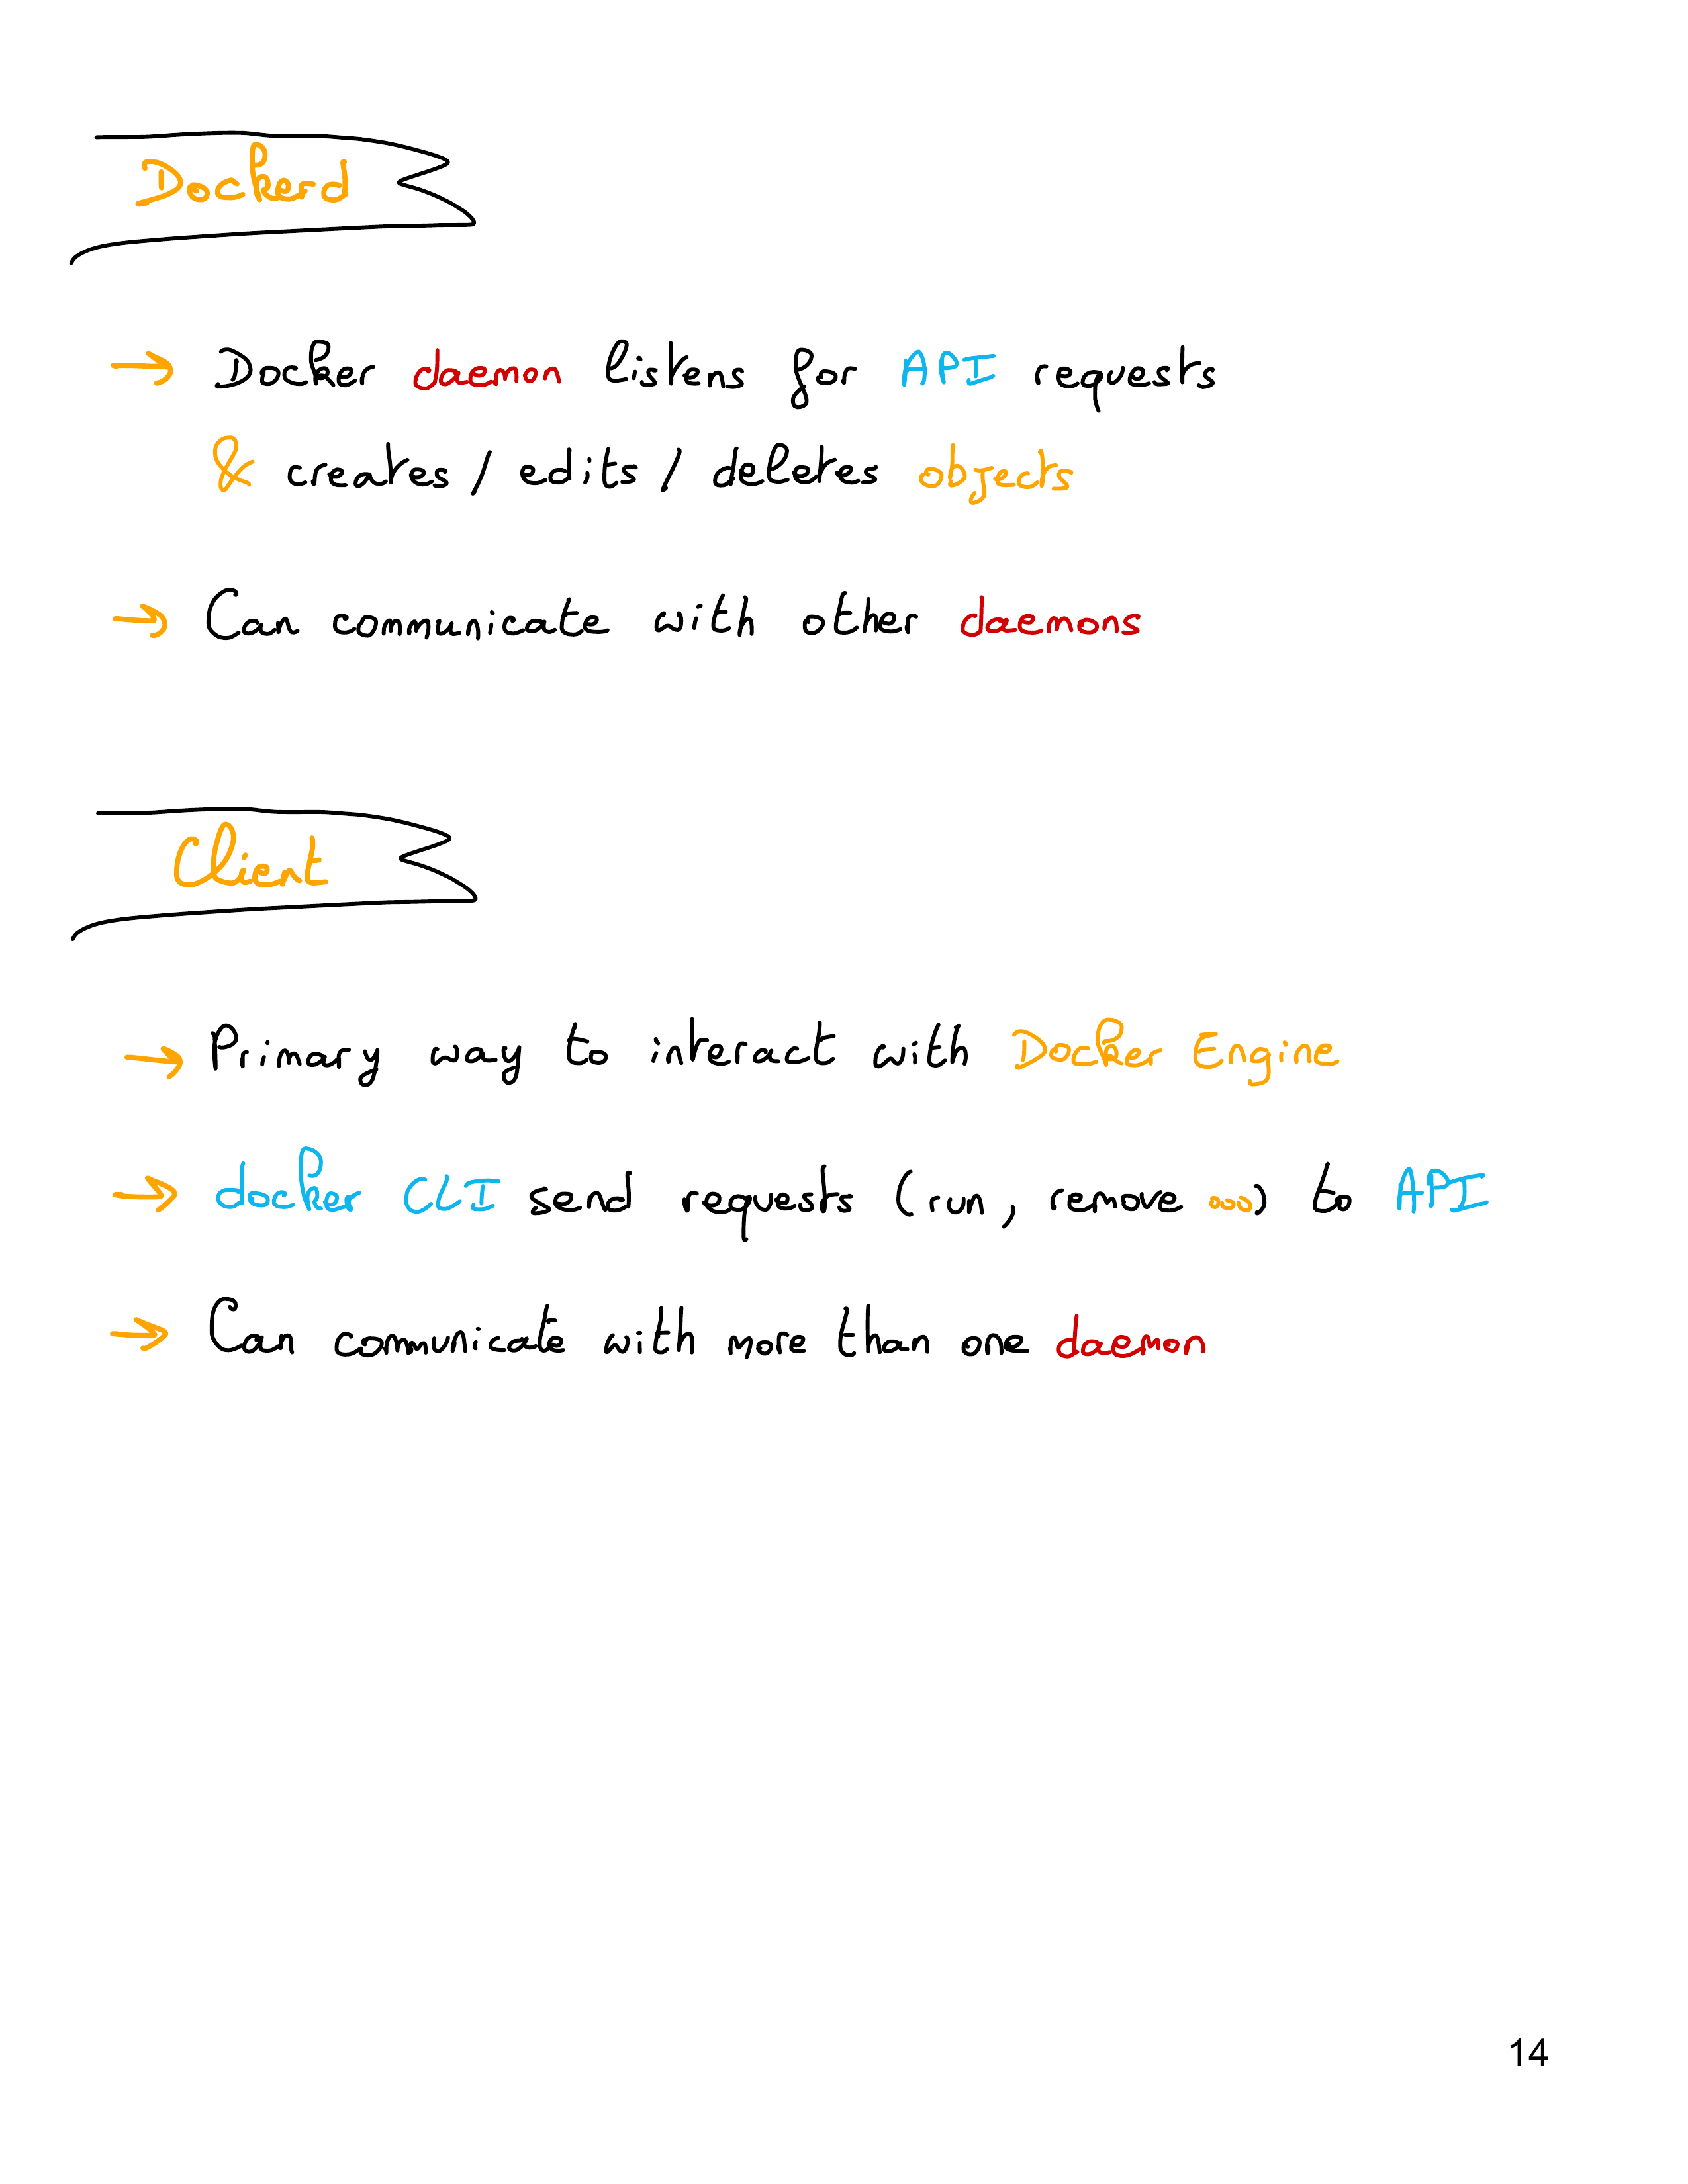 Dockerd
→ Docker daemon listens for API requests
& creates / edits / deletes objects
→ Can communicate with other daemons
Client
→ Primary way to interact with Docker Engine
→ docker CLI send requests (run, remove ...) to API
→ Can communicate with more than one daemon
14